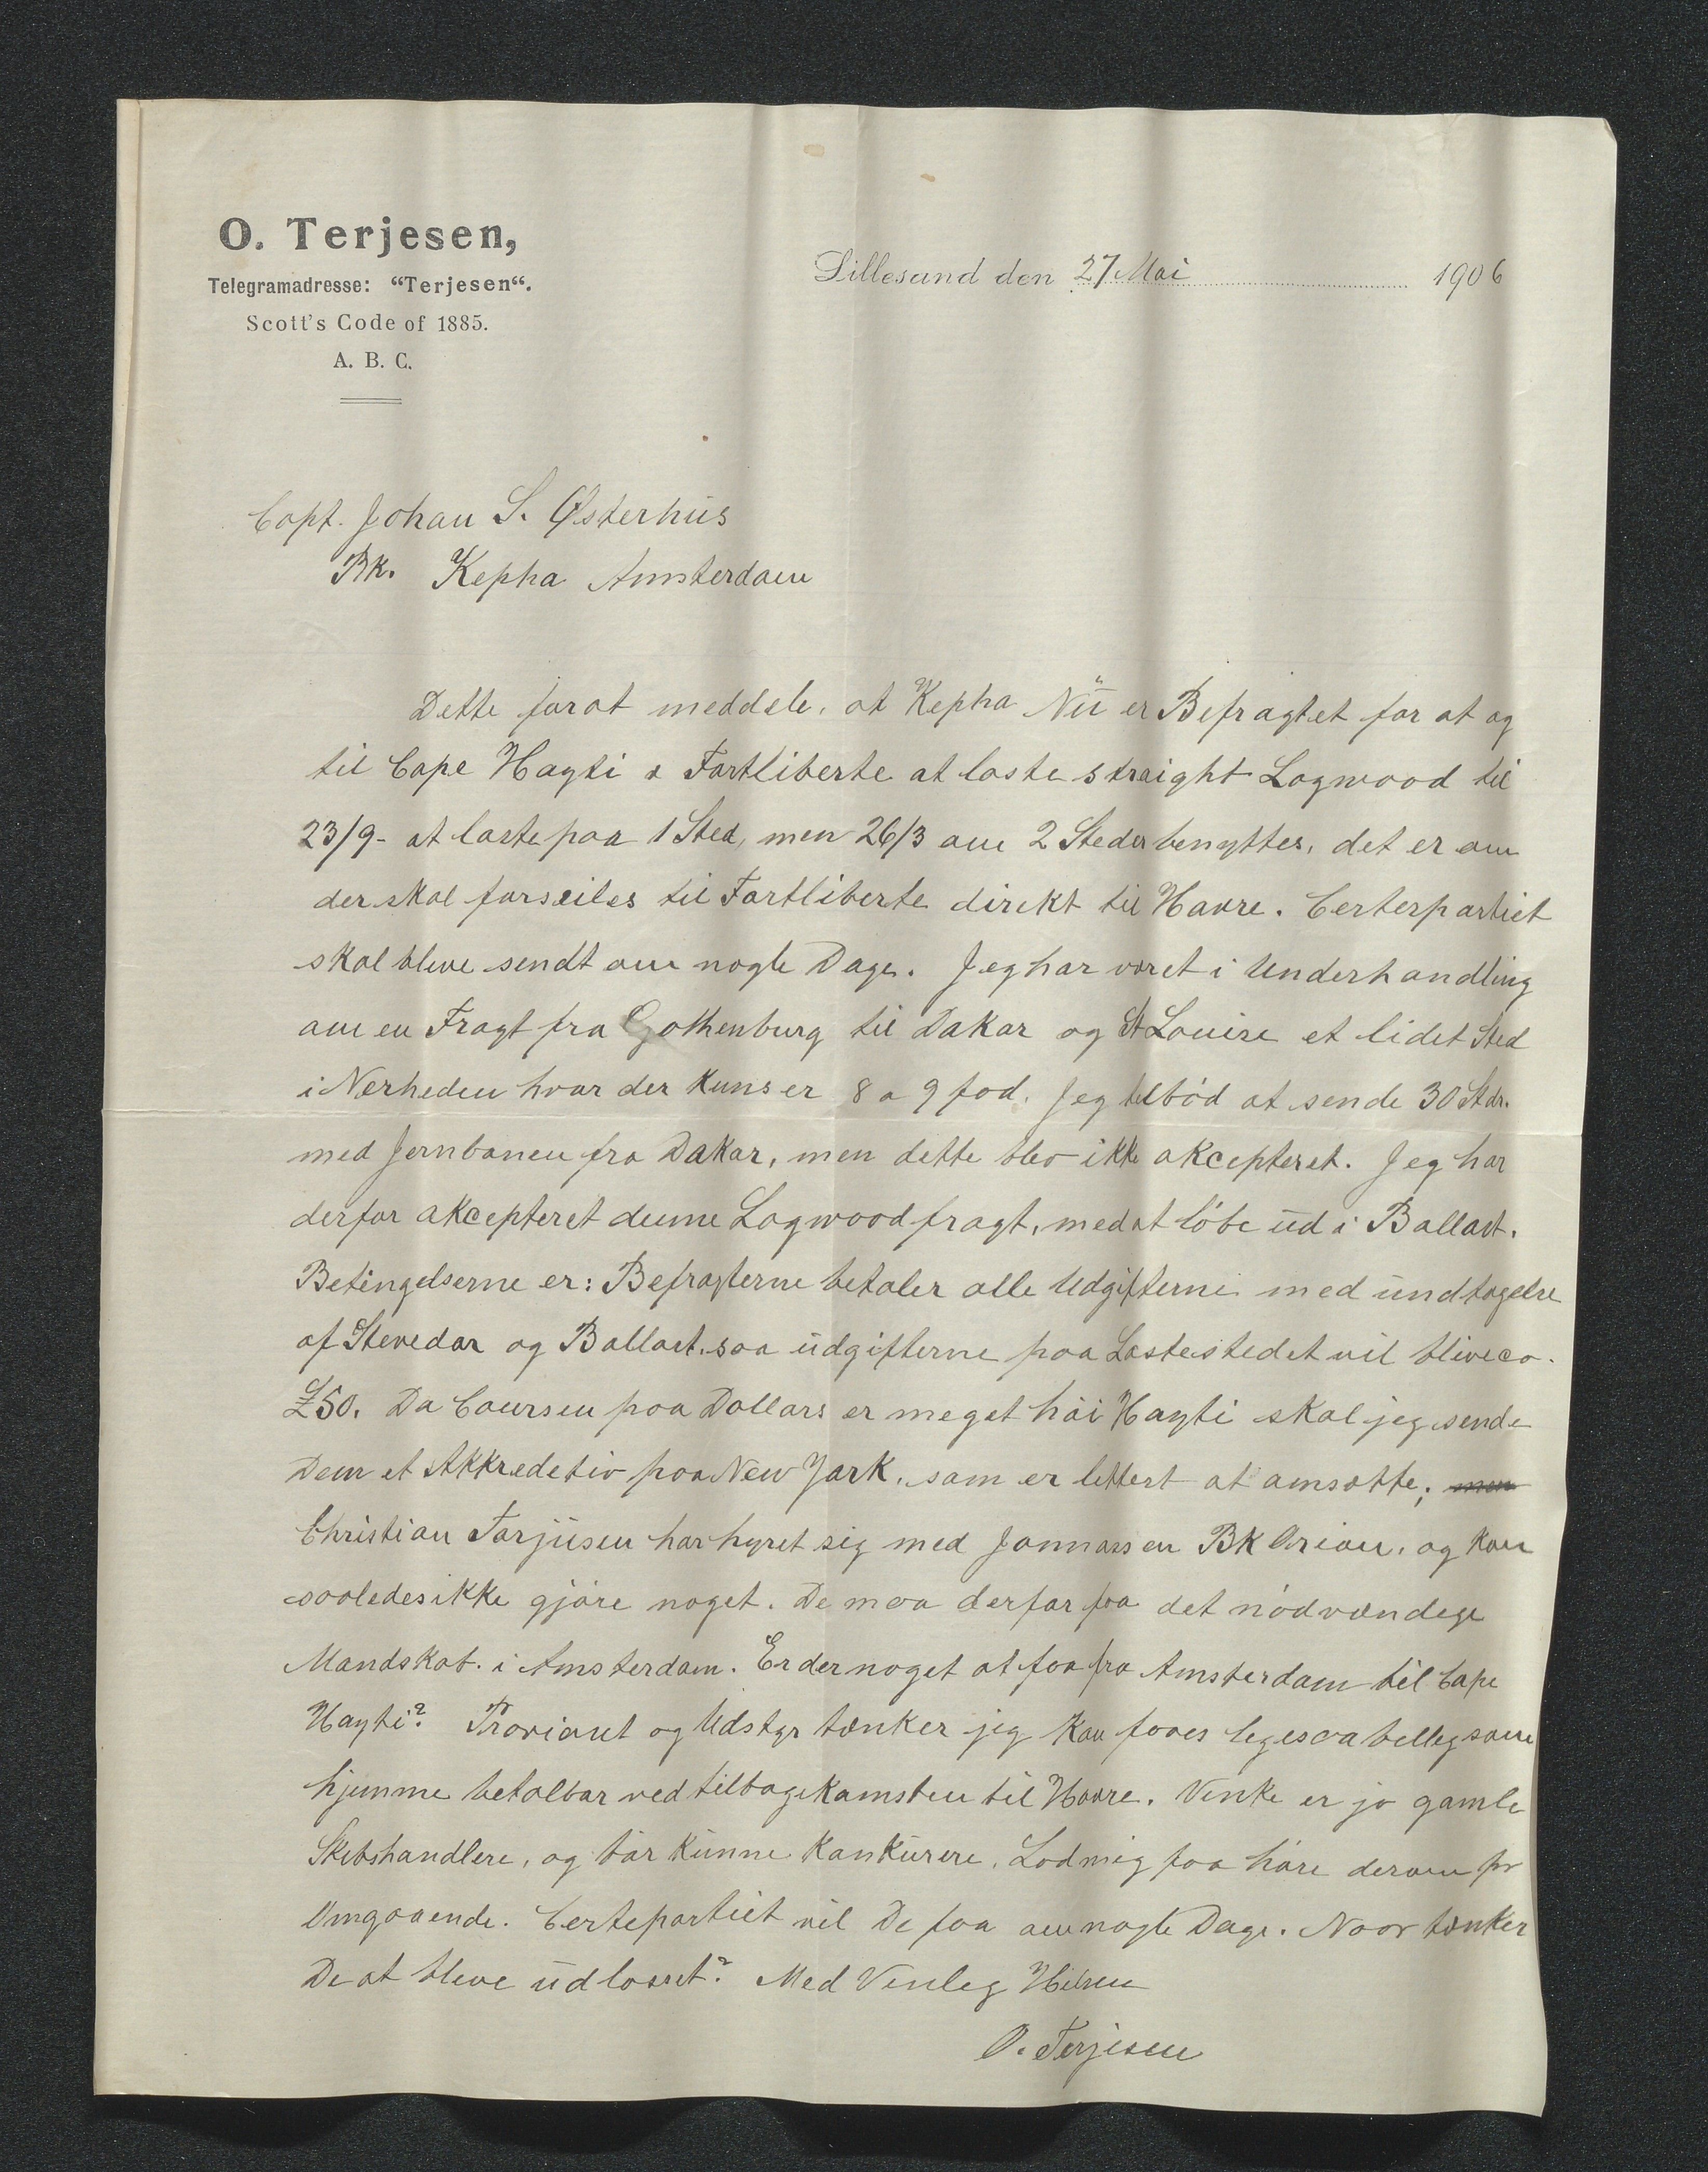 O. Terjesen,
Telegramadresse: “Terjesen“.
Scott's Code of 1885.
A. B. C.
Lillesand den 27 Mai 1906
Capt. Johan S. Østerhus
Bk. Kepha Amsterdam
Dette for at meddele, at Kepha Nu er Befragtet for at og
til Cape Hayti & Fortliberte at laste straight Logwood til
23/9- at laste paa 1 Sted, men 26/3 om 2 Steder benyttes, det er om
der skal forseiles til Fortliberte direkt til Havre. Certerpartiet
skal bleve sendt om nogle Dage. Jeg har været i Underhandling
om en Fragt fra Gothenburg til Dakar og St Louise et lidet Sted
i Nærheden hvor der kuns er 8 a 9 fod. Jeg telbød at sende 30 Stdr.
med Jernbanen fra Dakar, men dette blev ikke akcepteret. Jeg har
derfor akcepteret denne Logwoodfragt, med at løbe ud i Ballast.
Betingelserne er: Befragterne betaler alle Udgifterne med undtagelse
af Stevedor og Ballast. saa udgifterne paa Lastestedet vil blive ca.
£50. Da Coursen paa Dollars er meget høi Hayti skal jeg sende
Dem et Akkredetiv paa New York, som er lettest at omsætte;
Christian Torjusen har hyret sig med Jonnassen BK Orion, og kan
saaledes ikke gjøre noget. De maa derfor faa det nødvændege
Mandskab i Amsterdam. Er der noget at faa fra Amsterdam tel Cape
Hayti? Proviant og Udstyr tænker jeg kan faaes legesaa belleg som
hjemme betalbar ved tilbagekomsten til Havre. Vinke er jo gamle
Skebshandlere, og bør kunne konkurere. Lad mig faa høre derom pr
Omgaaende. Certepartiet vil De faa om nogle Dage. Naar tænker
De at bleve udlosset? Med Venleg Hilsen
O. Terjesen